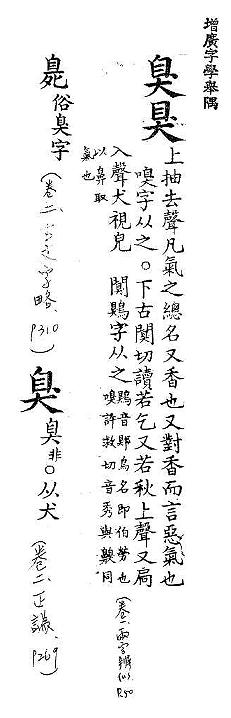 增廣字學舉隅
臭狊
上抽去聲凡氣之總名又香也又對香而言惡氣也
嗅字从之。下古闃切讀若乞又若秋上聲又扃
入聲犬視皃 闃鶪字从之
鶪音鄓鳥名即伯勞也
嗅許救切音秀與齅同
以鼻取
氣也
(卷一、兩字辨似、P.50
俗臭字
(卷二、古文字略、P310)
臭非。从犬
(卷二、正譌、P269)